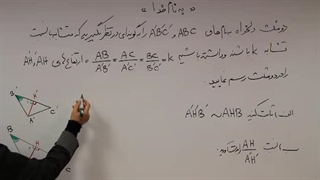 «به نام خدا»
دو مثلث دلخواه به نام های ABC و A'B'C' را به گونه ای در نظر بگیرید که متشابه با نسبت
تشابه k باشند و داشته باشیم AB/A'B' = AC/A'C' = BC/B'C' = k ارتفاع های AH و A'H'
را در دو مثلث رسم نمایید.
الف) ثابت کنید AHB ~ A'H'B'
ب) نسبت AH/A'H' را
B
C'
A'
B
H